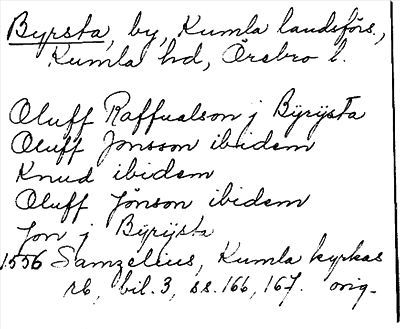 Byrsta, by, Kumla landsförs.,
Kumla hd, Örebro l.
Oluff Raffualson j Bÿrÿsta
Oluff Jonsson ibidem
Knud ibidem
Oluff Jönson ibidem
Jon j Bÿrÿsta
1556 Samzelius, Kumla kyrkas
rb, bil. 3, ss. 166, 167. orig.